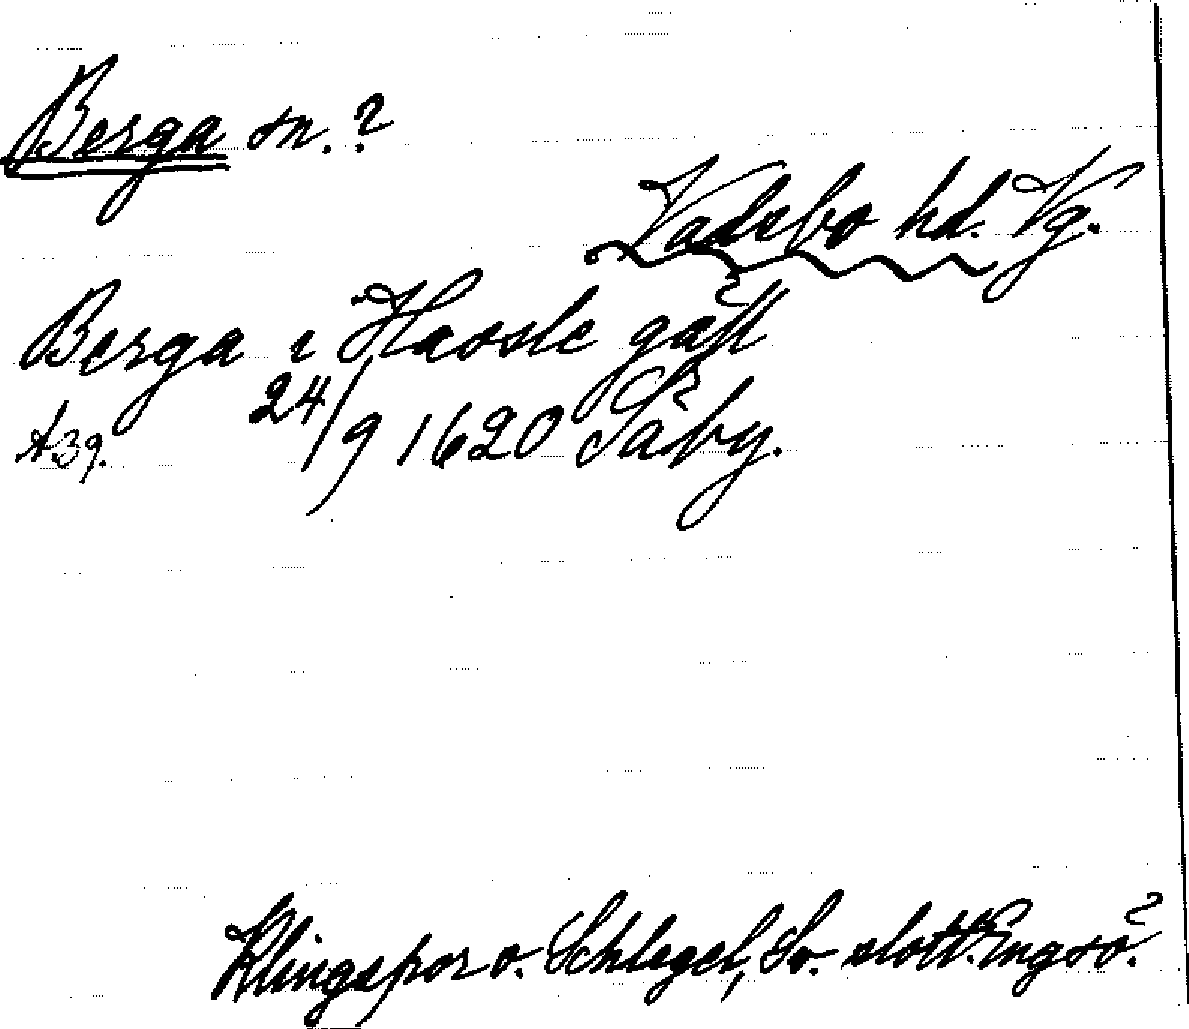 Berga sn.?
Vadsbo hd. Vg.
Berga i Hassle gäll
24/9 1620 Säby.
A39.
Klingspor o. Schlegel, Sv. slott. Engsö.